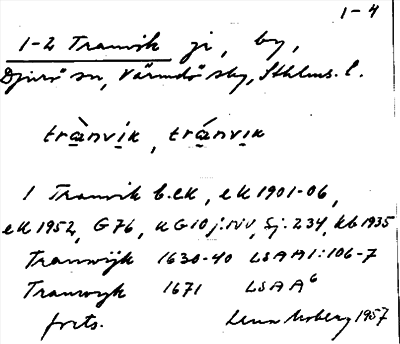 1-4
1-2 Tranvik ji, by,
Djurö sn, Värmdö sky, Sthlms. l.
trànvik, tránvik
1 Tranvik b.ek, ek 1901-06,
ek 1952, G 76, KG10 j:niv, Sj. 234, kb 1935
Tranwijk 1630-40 LSAA1:106-7
Tranwyk 1671 LSAA6
forts. Lena Moberg 1957